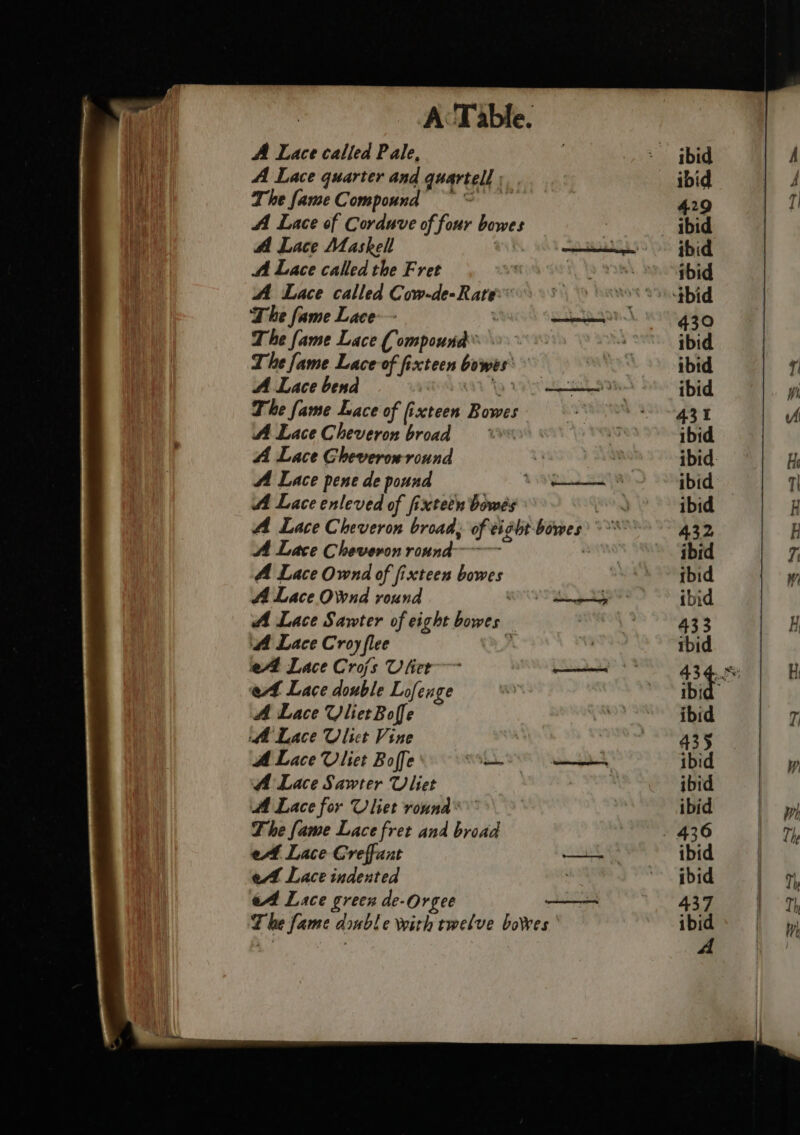 A Table.
A Lace called Pale, ibid
A Lace quarter and quartell ibid
The ſame Compound 429
A Lace of Corduve of four bowes ibid
A Lace Maskell ibid
A Lace called the Fret ibid
A Lace called Cow-de-Rate ibid
The ſame Lace 430
The ſame Lace Compound ibid
The ſame Lace of ſixteen bowes ibid
A Lace bend ibid
The ſame Lace of ſixteen Bowes 431
A Lace Cheveron broad ibid
A Lace Cheveron round ibid
A Lace pene de pound ibid
A Lace enleved of ſixteen bowes ibid
A Lace Cheveron broad, of eight bowes 432
A Lace Cheveron round ibid
A Lace Ownd of ſixteen bowes ibid
A Lace Ownd round ibid
A Lace Sawter of eight bowes 433
A Lace Croyſlee ibid
A Lace Croſs Uliet 434
A Lace double Loſenge ibid
A Lace Uliet Boſſe ibid
A Lace Uliet Vine 435
A Lace Uliet Boſſe ibid
A Lace Sawter Uliet ibid
A Lace for Uliet round ibid
The ſame Lace fret and broad 436
A Lace Creſſant ibid
A Lace indented ibid
A Lace green de-Orgee 437
The ſame double with twelve bowes ibid
A